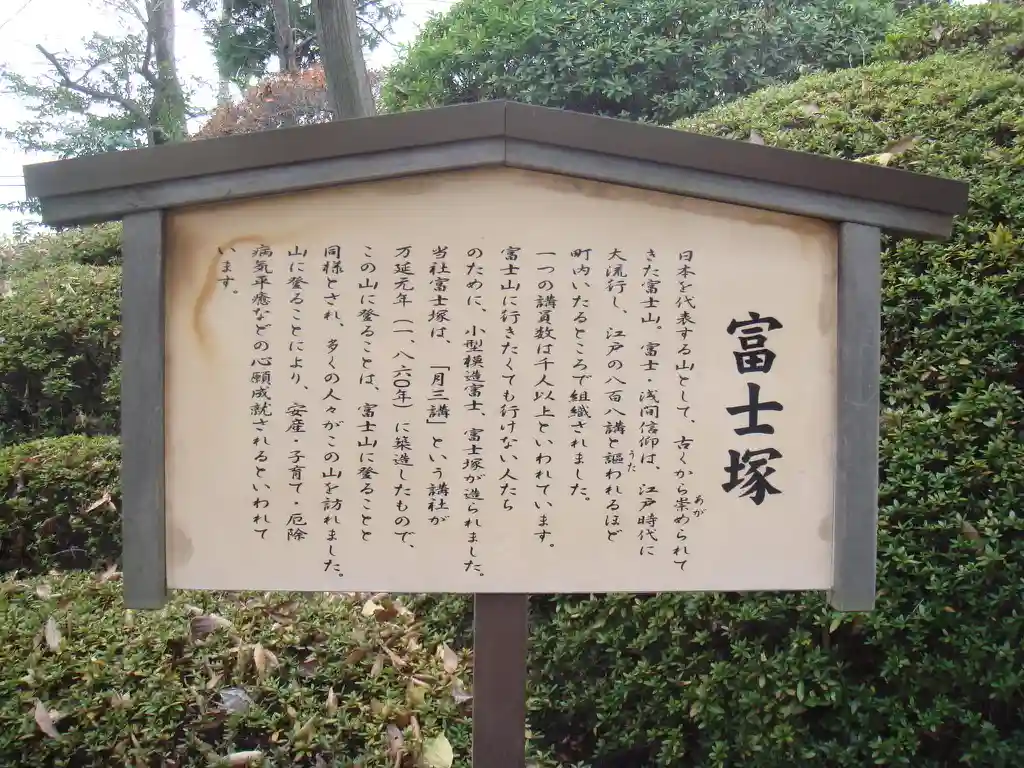 富士塚
日本を代表する山として、古くから崇められて
あが
きた富士山。富士・浅間信仰は、江戸時代に
大流行し、江戸の八百八講と謳われるほど
うた
町内いたるところで組織されました。
一つの講員数は千人以上といわれています。
富士山に行きたくても行けない人たち
のために、小型模造富士、富士塚が造られました。
当社富士塚は、「月三講」という講社が
万延元年（一、八六〇年）に築造したもので、
この山に登ることは、富士山に登ることと
同様とされ、多くの人々がこの山を訪れました。
山に登ることにより、安産・子育て・厄除
病気平癒などの心願成就されるといわれて
います。